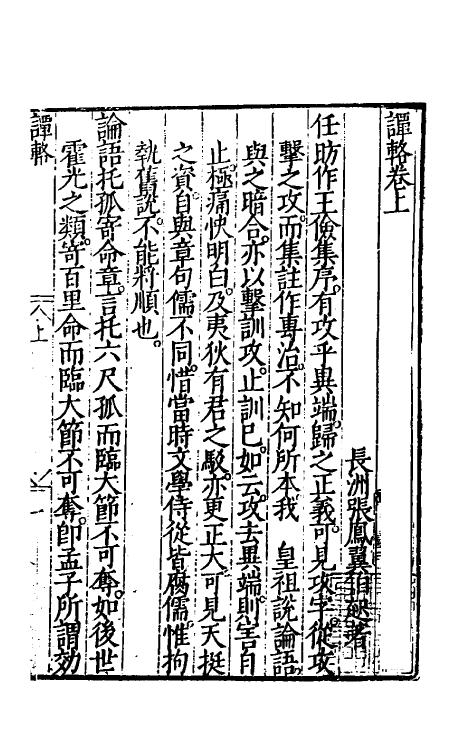 譚輅卷上
長洲張鳳翼伯起著
任昉作王儉集序。有攻乎異端。歸之正義。可見攻字從攻
擊之攻。而集註作專治。不知何所本。我 皇祖說論語
與之暗合。亦以擊訓攻。止訓已。如云。攻去異端。則害自
止。極痛快明白。及夷狄有君之駁。亦更正大。可見天挺
之資。自與章句儒不同。惜當時文學侍從皆腐儒。惟拘
執舊說。不能將順也。
論語托孤寄命章。言托六尺孤而臨大節不可奪。如後世
霍光之類。寄百里命而臨大節不可奪。卽孟子所謂効
譚輅
上
一